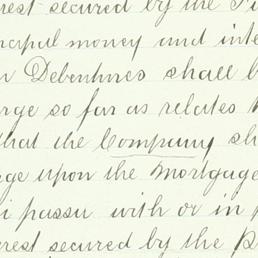 rest secured by the Fi
ncipal money and inte
n Debentures shall b
rge so far as relates t
that the Company sh
ge upon the Mortgage
i passu with or in p
erest secured by the p